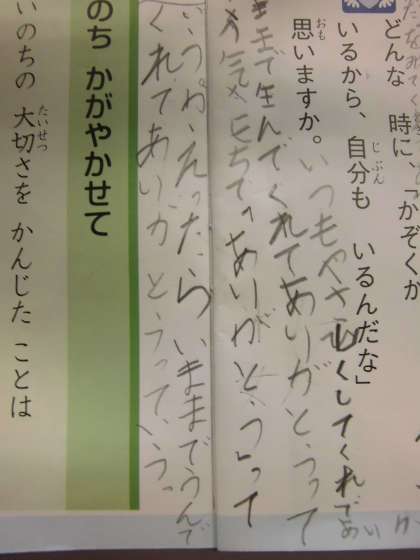 どんな 時に、「かぞくが
いるから、自分も いるんだな」
思いますか。
いつもやさしくしてくれ
生んでくれてありがとうって
気もちで「ありがとう」って
ったら いままでうんで
くれてありがとうっていう
のち かがやかせて
いのちの 大切さを かんじた ことは